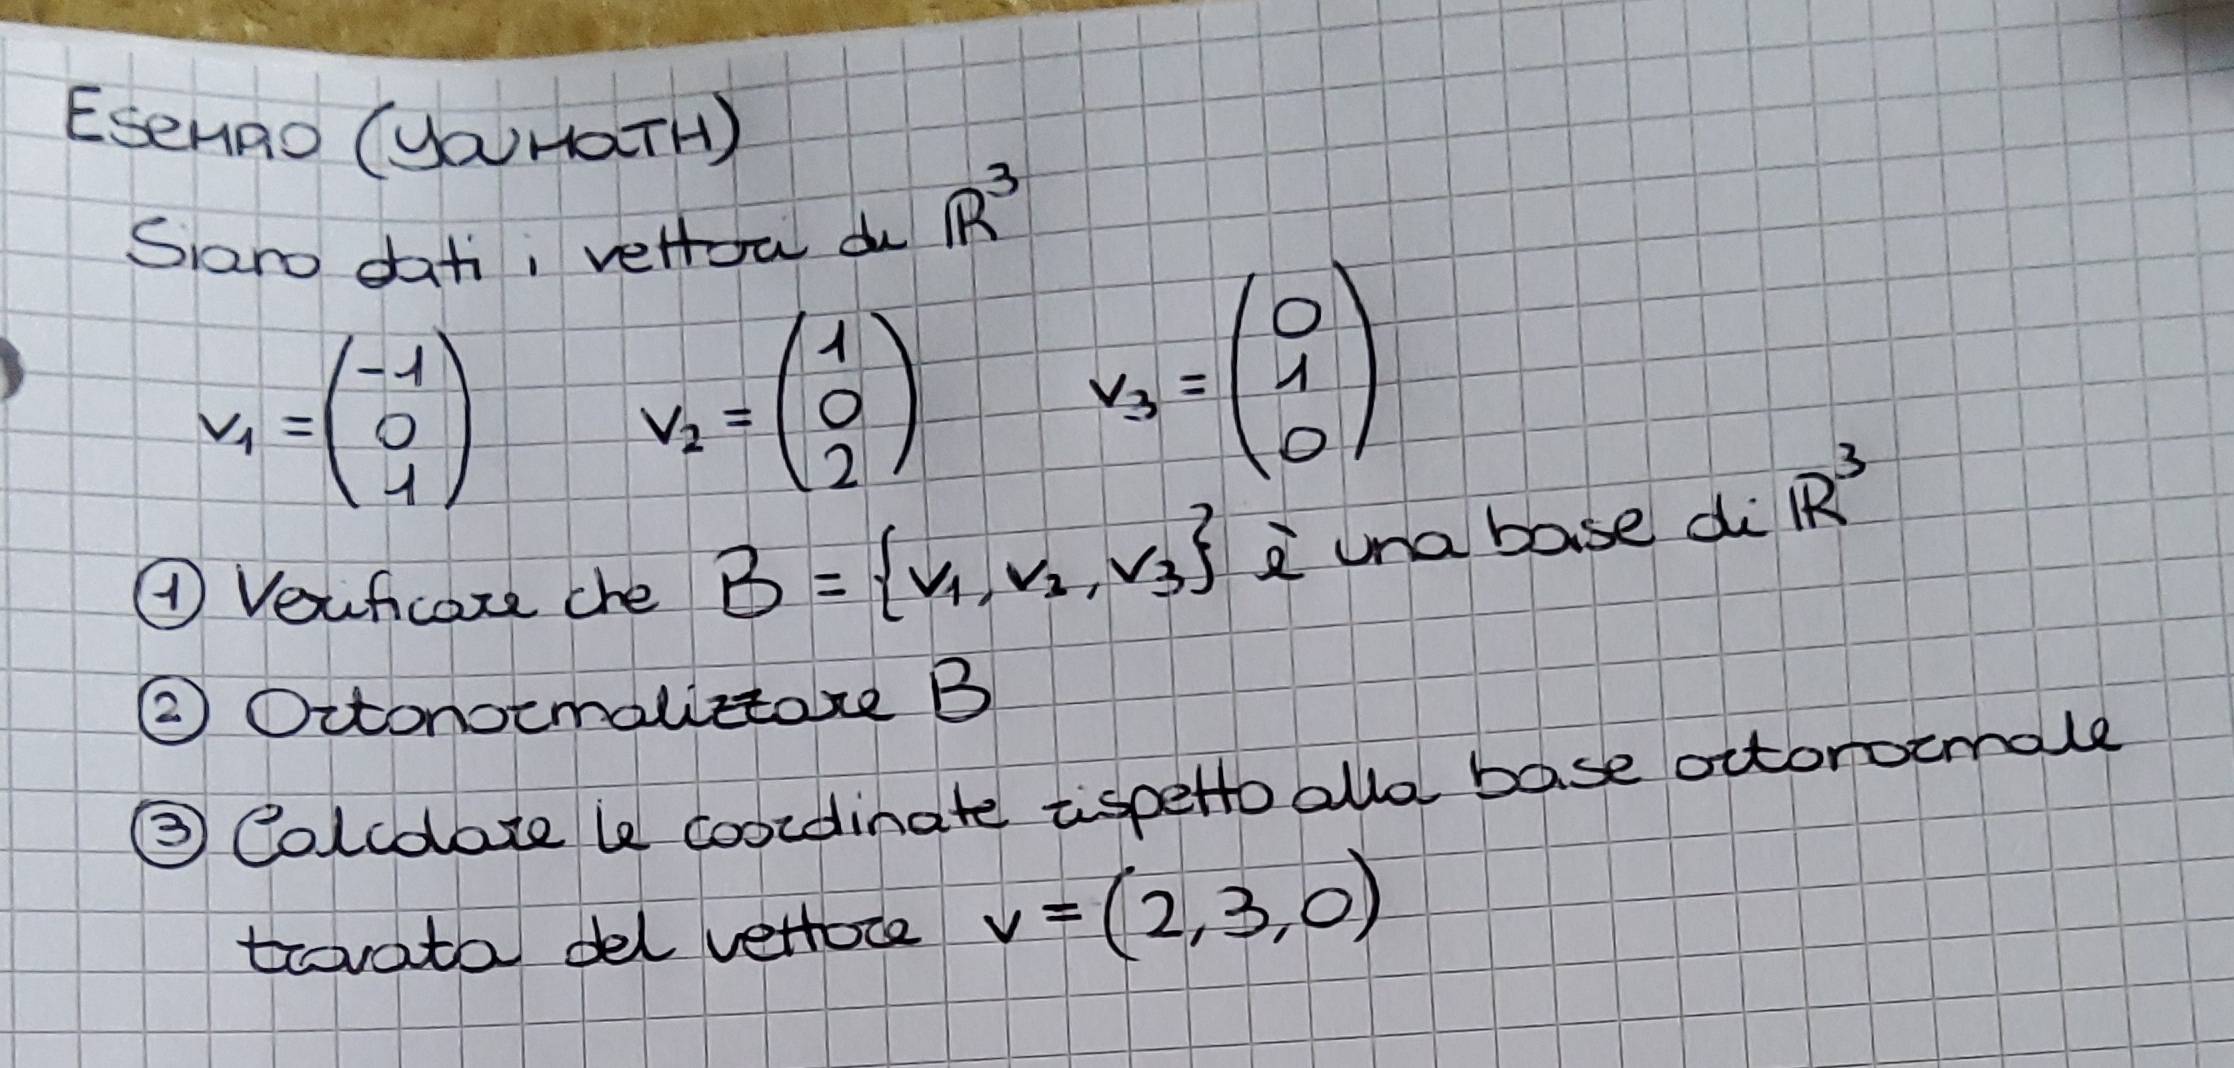 Esempio (YouMath)
Siano dati i vettori di ℝ³
v₁ = (-1 0 1) v₂ = (1 0 2) v₃ = (0 1 0)
① Verificare che B = {v₁, v₂, v₃} è una base di ℝ³
② Ortonormalizzare B
③ Calcolare le coordinate rispetto alla base ortonormale
trovata del vettore v = (2, 3, 0)